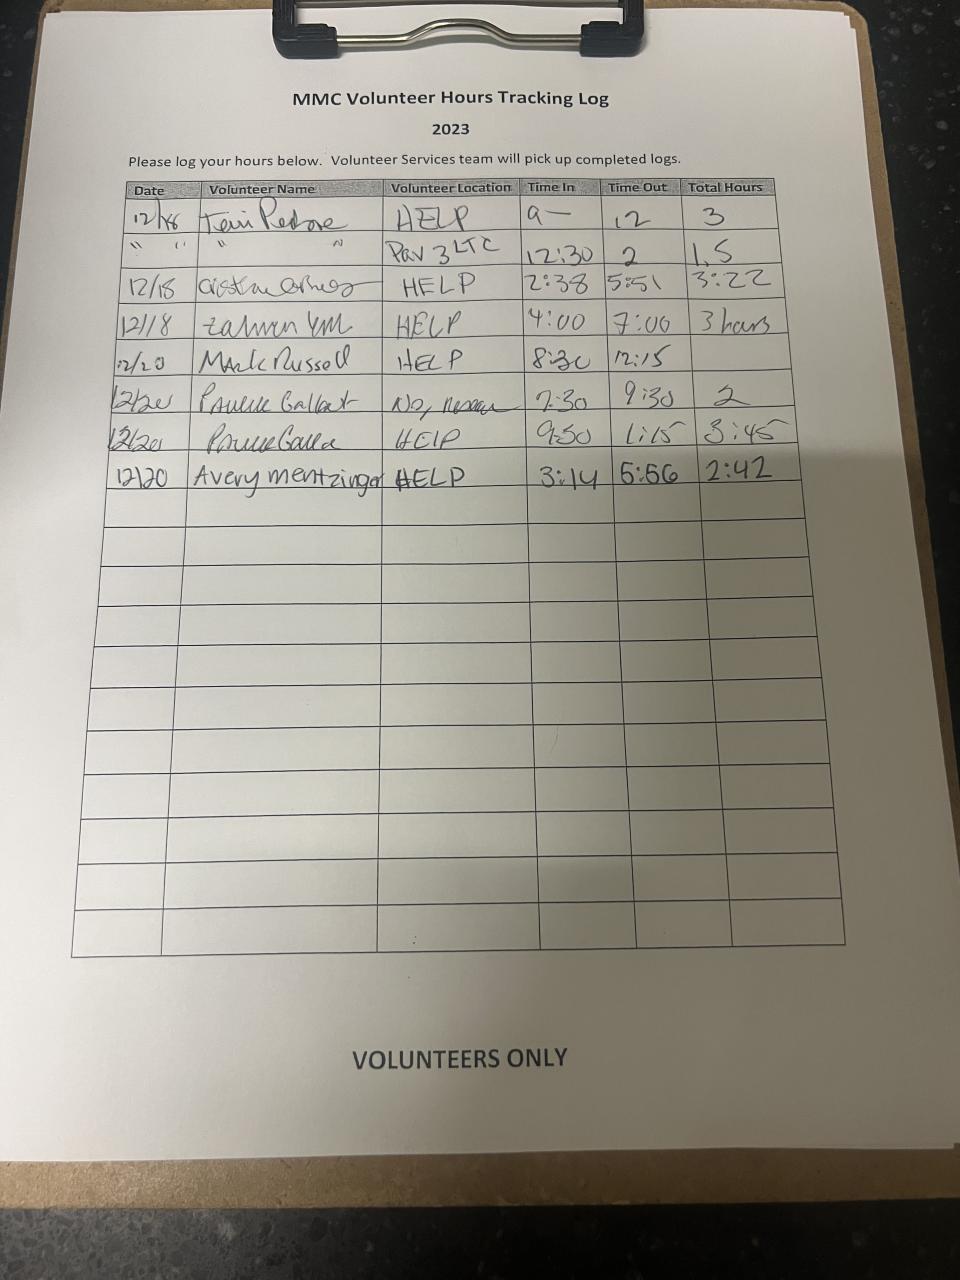 MMC Volunteer Hours Tracking Log
2023
Please log your hours below. Volunteer Services team will pick up completed logs.
Date Volunteer Name Volunteer Location Time In Time Out Total Hours
12/18 HELP 9— 12 3
" " " " Pav 3 LTC 12:30 2 1.5
12/18 HELP 2:38 5:51 3:22
12/18 HELP 4:00 7:00 3 hours
12/20 Mark Russell HELP 8:30 12:15
12/20 7:30 9:30 2
12/20 HELP 9:30 1:15 3:45
12/20 Avery Mentzinger HELP 3:14 5:56 2:42
VOLUNTEERS ONLY